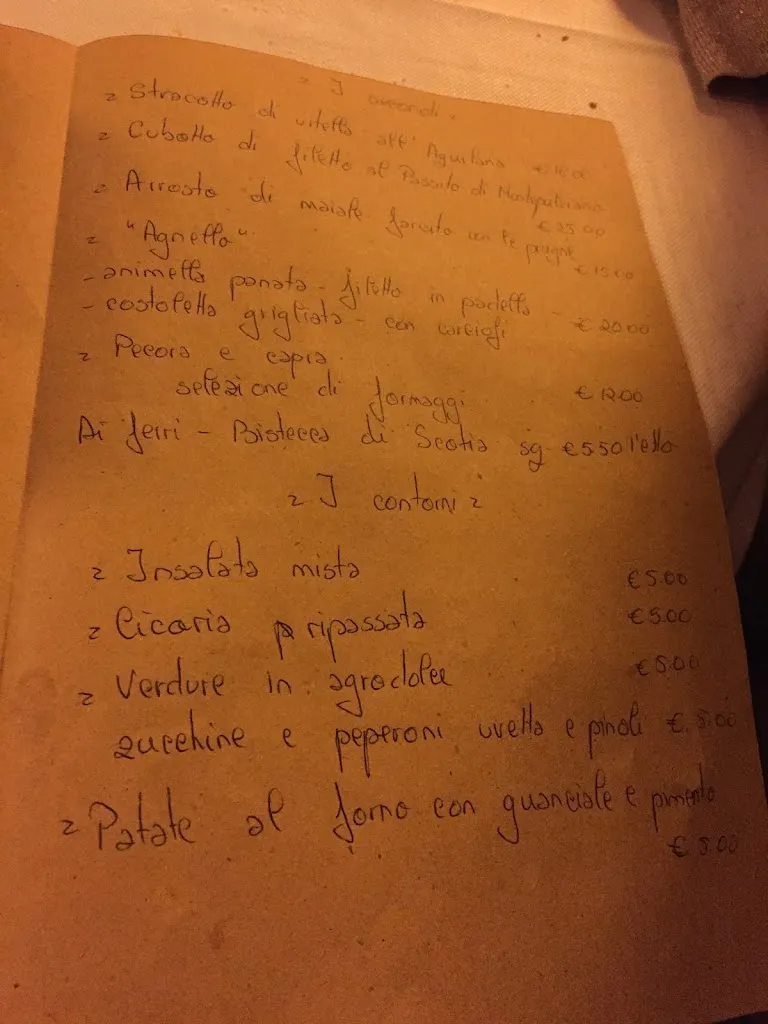 ~ I secondi ~
~ Stracotto di vitella all'Aquilana €
~ Cubotto di filetto al Passito di Montepulciano
€ 25.00
~ Arrosto di maiale farcito con le prugne
€ 15.00
~ "Agnello"
- animella panata - filetto in padella -
- costoletta grigliata - con carciofi € 20.00
~ Pecora e capra
selezione di formaggi € 12.00
Ai ferri - Bistecca di Scotia sg €5.50 l'etto
~ I contorni ~
~ Insalata mista € 5.00
~ Cicoria ripassata € 5.00
~ Verdure in agrodolce € 5.00
zucchine e peperoni uvetta e pinoli € 5.00
~ Patate al forno con guanciale e pimento
€ 5.00